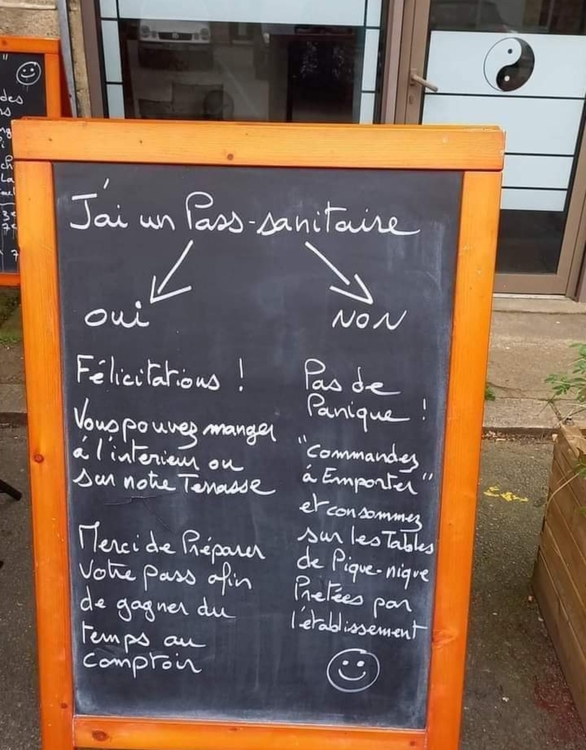 J'ai un Pass-sanitaire
oui
NON
Félicitations !
Vous pouvez manger
à l'interieur ou
sur notre Terrasse
Merci de Préparer
Votre pass afin
de gagner du
temps au
comptoir
Pas de
Panique !
"Commandez
à Emporter"
et consommez
sur les Tables
de Pique-nique
Pretées par
l'établissement
des